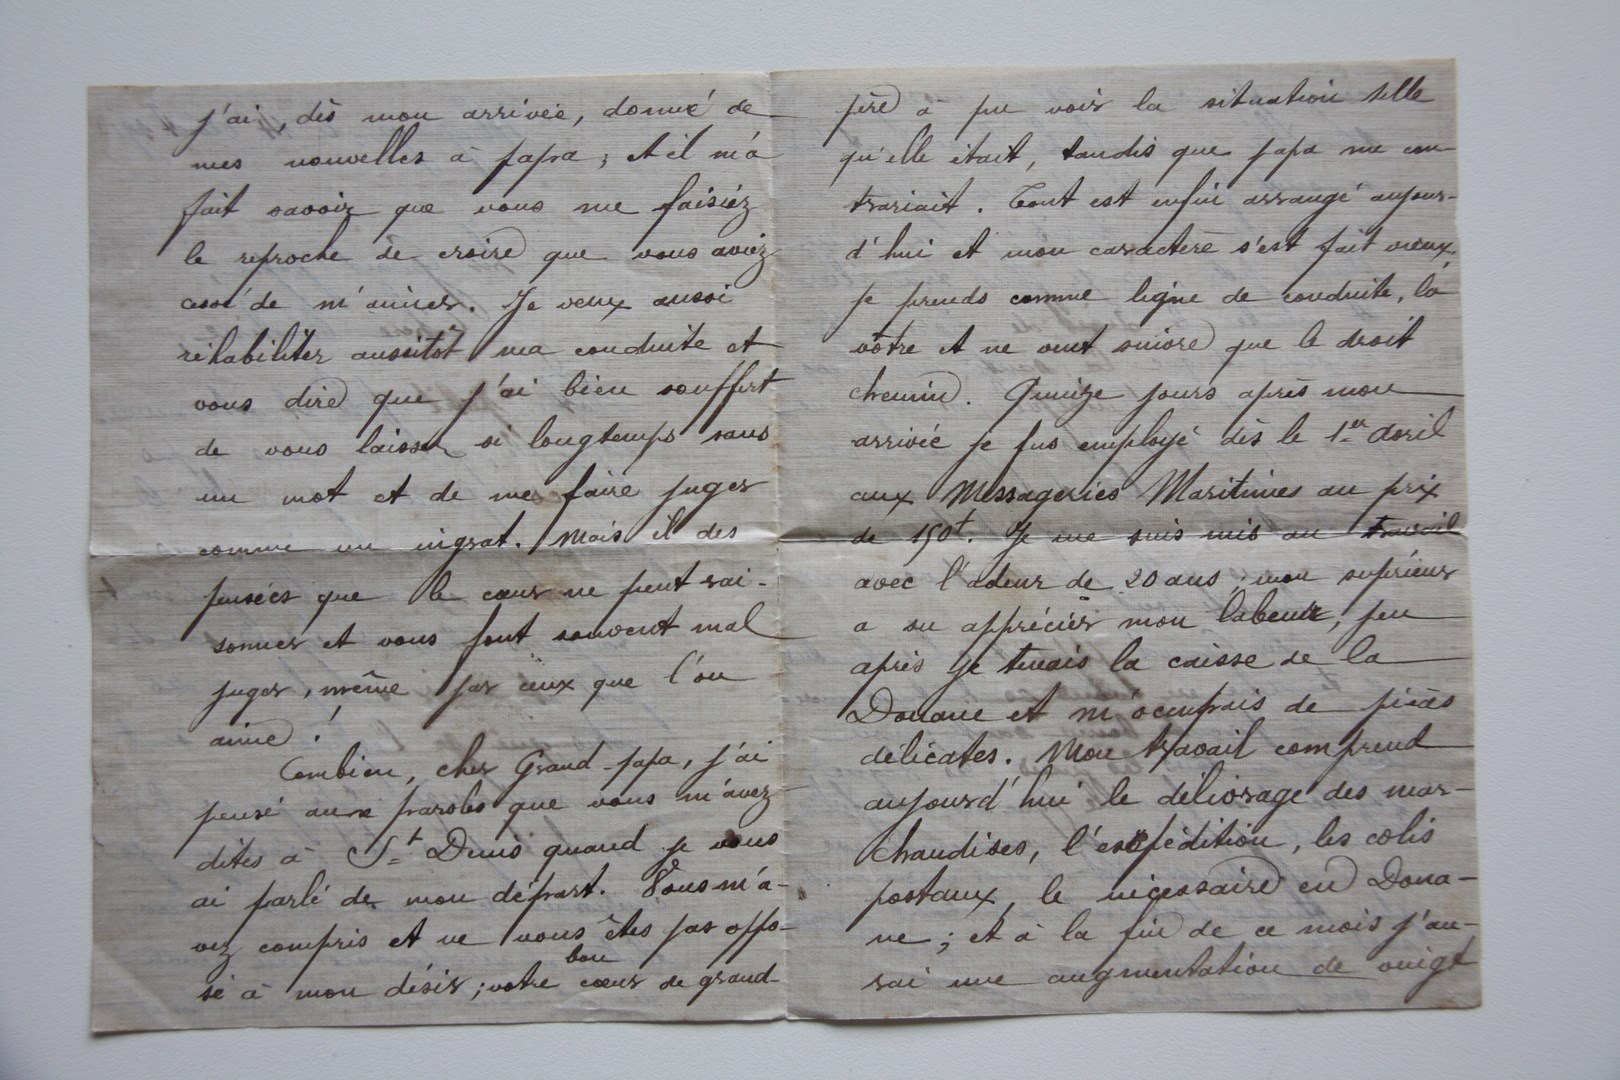 j'ai, dès mon arrivée, donné de
mes nouvelles à papa ; et il m'a
fait savoir que vous me faisiez
le reproche de croire que vous aviez
cessé de m'aimer. Je veux aussi
réhabiliter aussitôt ma conduite et
vous dire que j'ai bien souffert
de vous laisser si longtemps sans
un mot et de me faire juger
comme un ingrat. Mais il des
pensées que le cœur ne peut rai-
sonner et vous font souvent mal
juger, même par ceux que l'on
aime !
Combien, cher Grand-papa, j'ai
pensé aux paroles que vous m'avez
dites à St Denis quand je vous
ai parlé de mon départ. Vous m'a-
vez compris et ne vous êtes pas oppo-
sé à mon désir ; votre bon cœur de grand-
père à pu voir la situation telle
qu'elle était, tandis que papa me con-
trariait. Tout est enfin arrangé aujour-
d'hui et mon caractère s'est fait vieux,
je prends comme ligne de conduite, la
vôtre et ne veut suivre que le droit
chemin. Quinze jours après mon
arrivée je fus employé dès le 1er Avril
aux Messageries Maritimes au prix
de 150f. Je me suis mis au travail
avec l'adeur de 20 ans ; mon supérieur
a su apprécier mon labeur, peu
après je tenais la caisse de la
Douane et m'occupais de pièces
délicates. Mon travail comprend
aujourd'hui le délivrage des mar-
chandises, l'expédition, les colis
postaux, le nécessaire en Doua-
ne ; et à la fin de ce mois j'au-
rai une augmentation de vingt